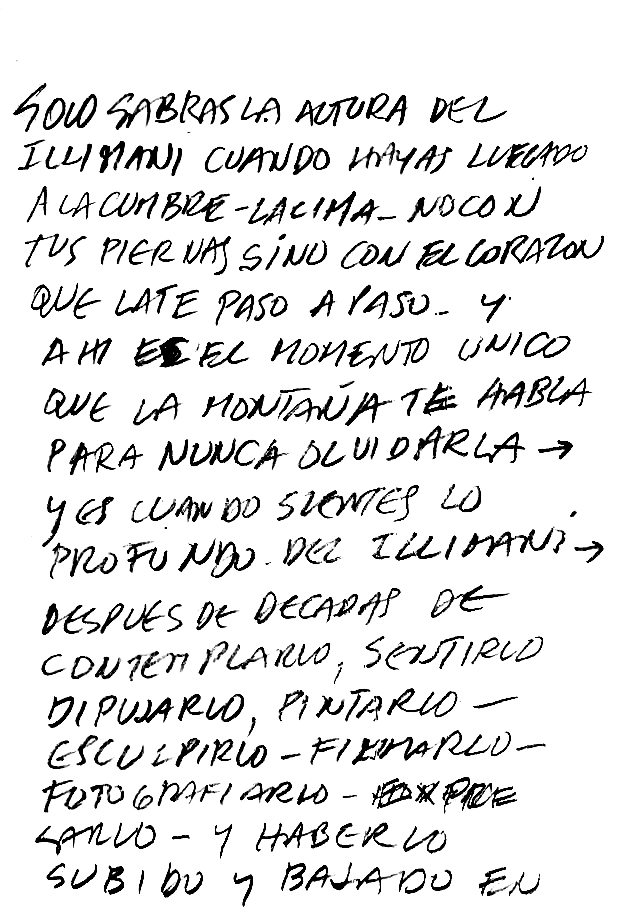 SOLO SABRAS LA ALTURA DEL
ILLIMANI CUANDO HAYAS LLEGADO
A LA CUMBRE - LA CIMA - NO CON
TUS PIERNAS SINO CON EL CORAZON
QUE LATE PASO A PASO - Y
AHI ES EL MOMENTO UNICO
QUE LA MONTAÑA TE HABLA
PARA NUNCA OLVIDARLA →
Y ES CUANDO SIENTES LO
PROFUNDO DEL ILLIMANI →
DESPUES DE DECADAS DE
CONTEMPLARLO, SENTIRLO
DIBUJARLO, PINTARLO —
ESCULPIRLO - FILMARLO -
FOTOGRAFIARLO - EXPRE
SARLO - Y HABERLO
SUBIDO Y BAJADO EN